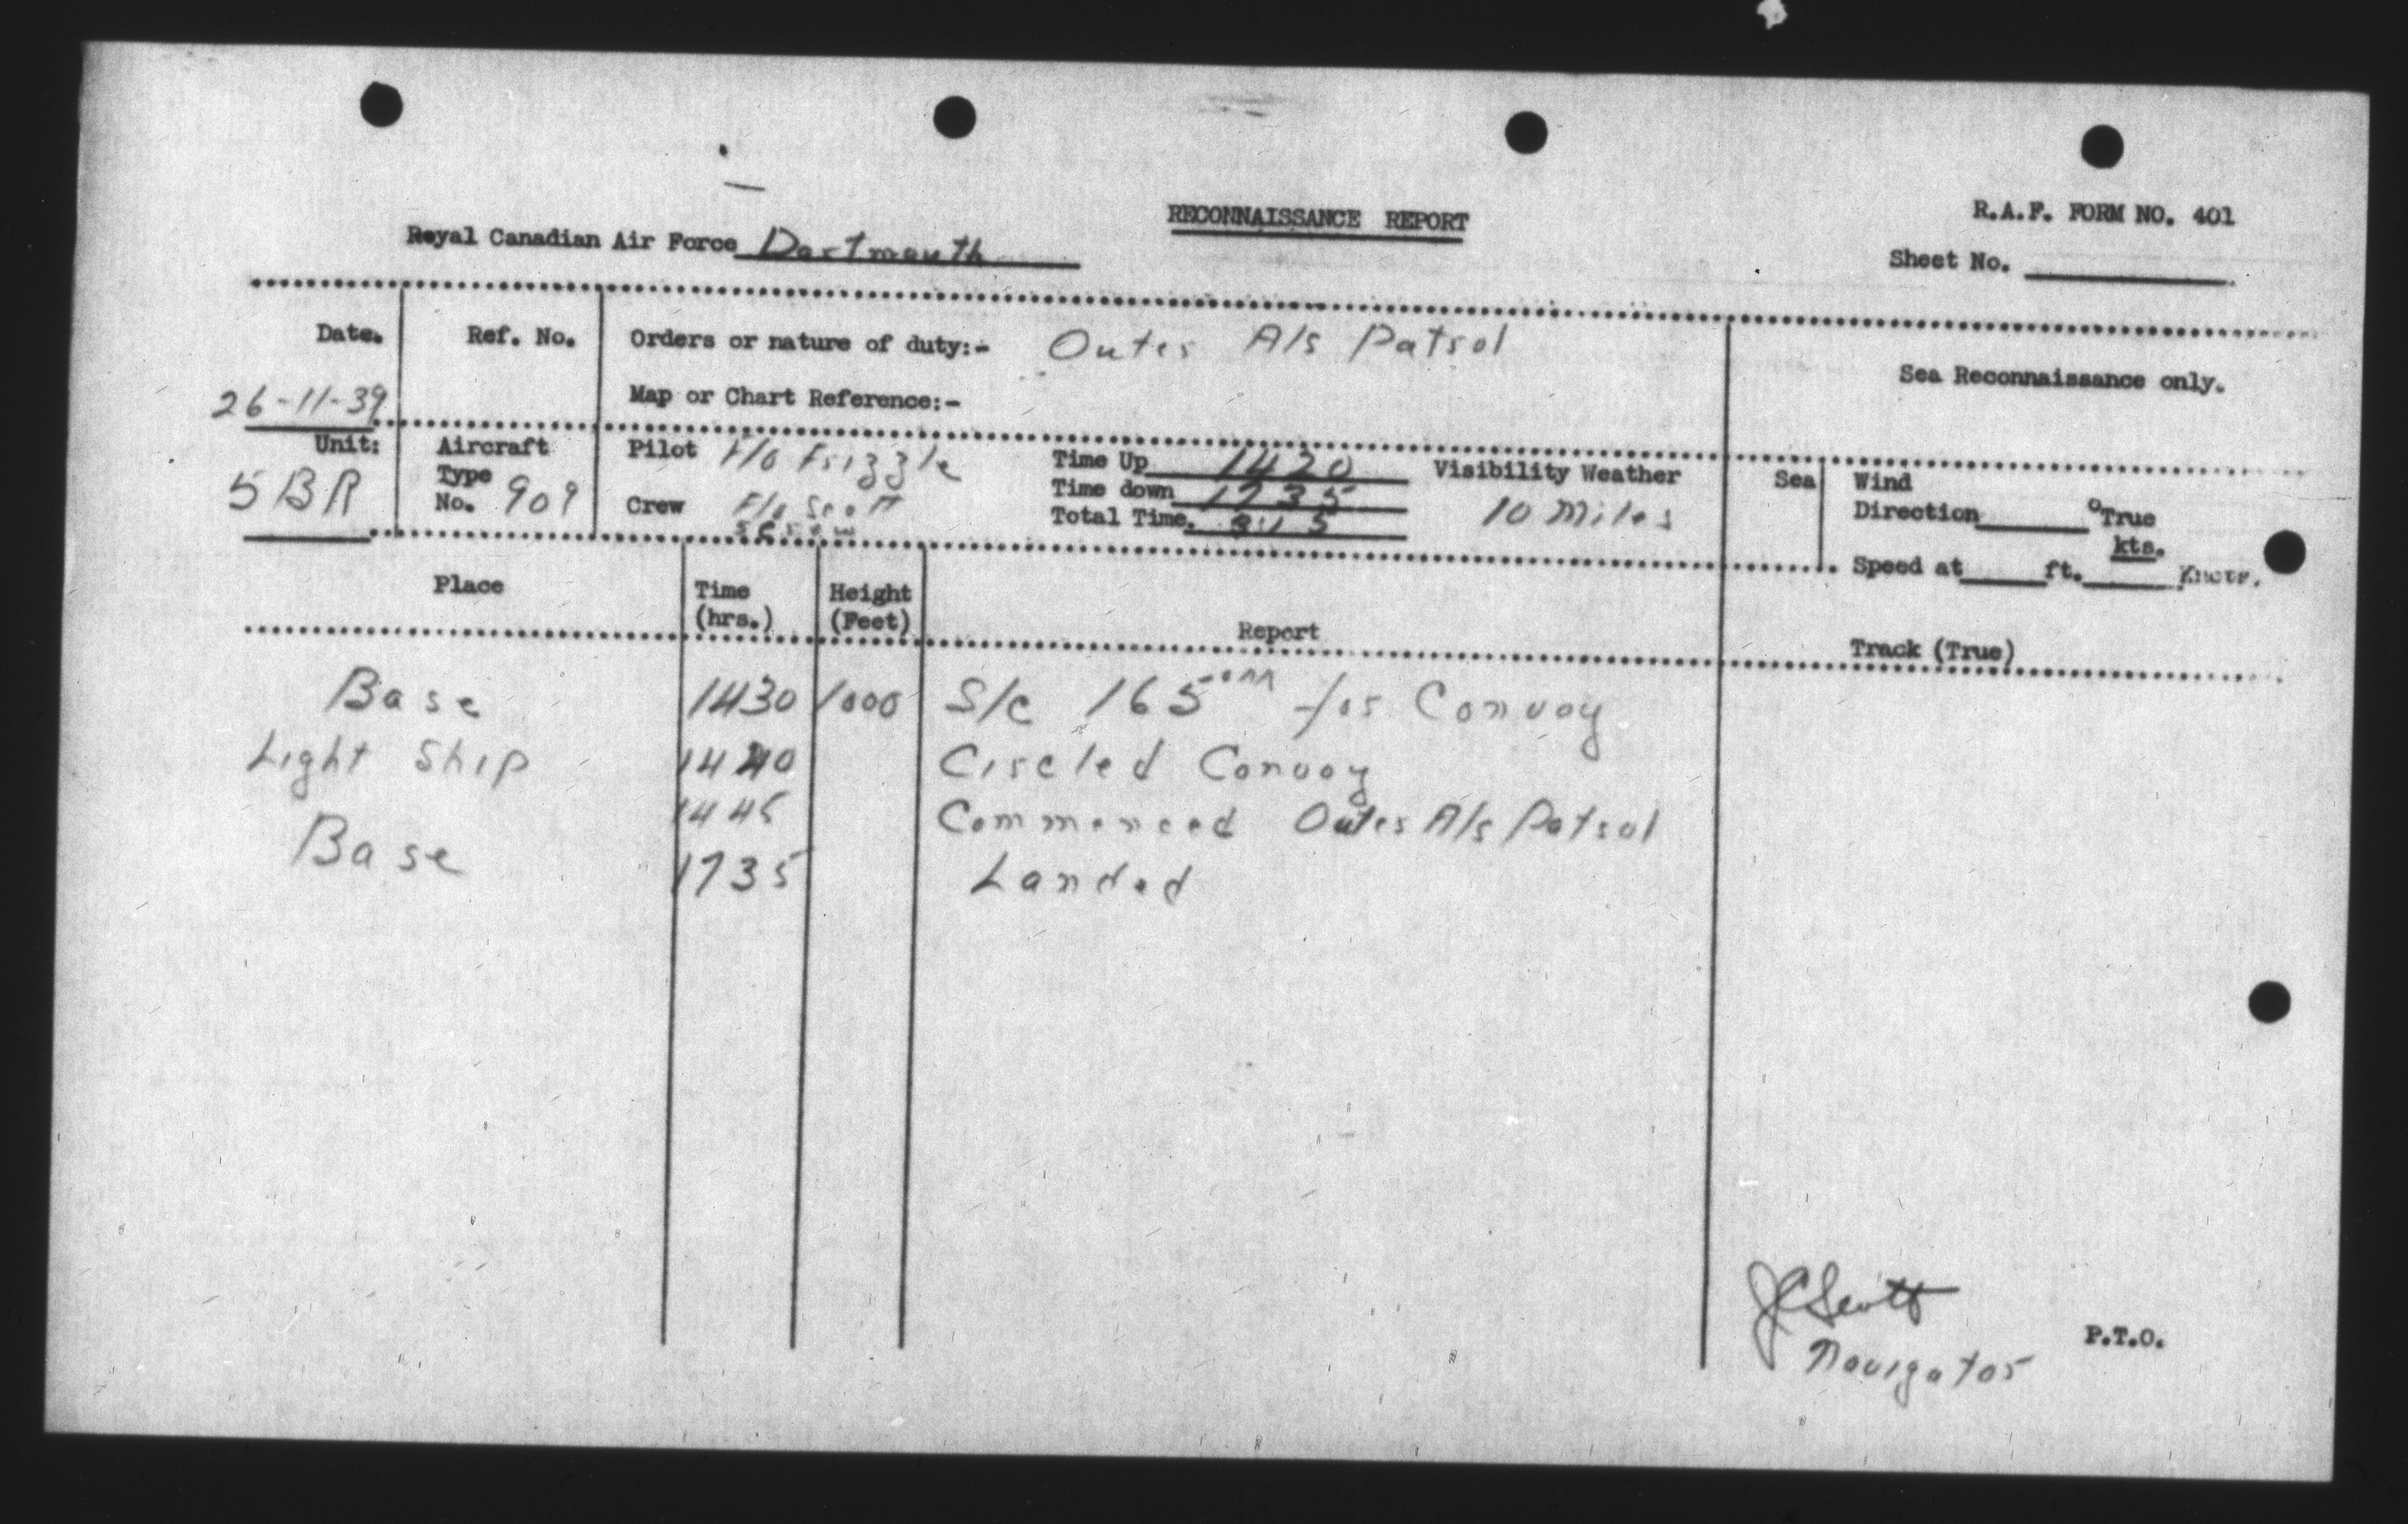 RECONNAISSANCE REPORT
R.A.F. FORM NO. 401
Royal Canadian Air Force Dartmouth
Sheet No.
Date. Ref. No. Orders or nature of duty:- Outer A/S Patrol
Sea Reconnaissance only.
26-11-39 Map or Chart Reference:-
Unit: Aircraft Pilot F/O Frizzle Time Up 1420 Visibility Weather Sea Wind
5 BR Type Time down 1735 10 Miles Direction °True
No. 909 Crew F/O Scott Total Time. 3:15 kts.
Speed at ft. Knots.
Place Time (hrs.) Height (Feet) Report Track (True)
Base 1430 1000 S/c 165 for Convoy
Light Ship 1440 Circled Convoy
1445 Commenced Outer A/S Patrol
Base 1735 Landed
JC Scott
Navigator
P.T.O.